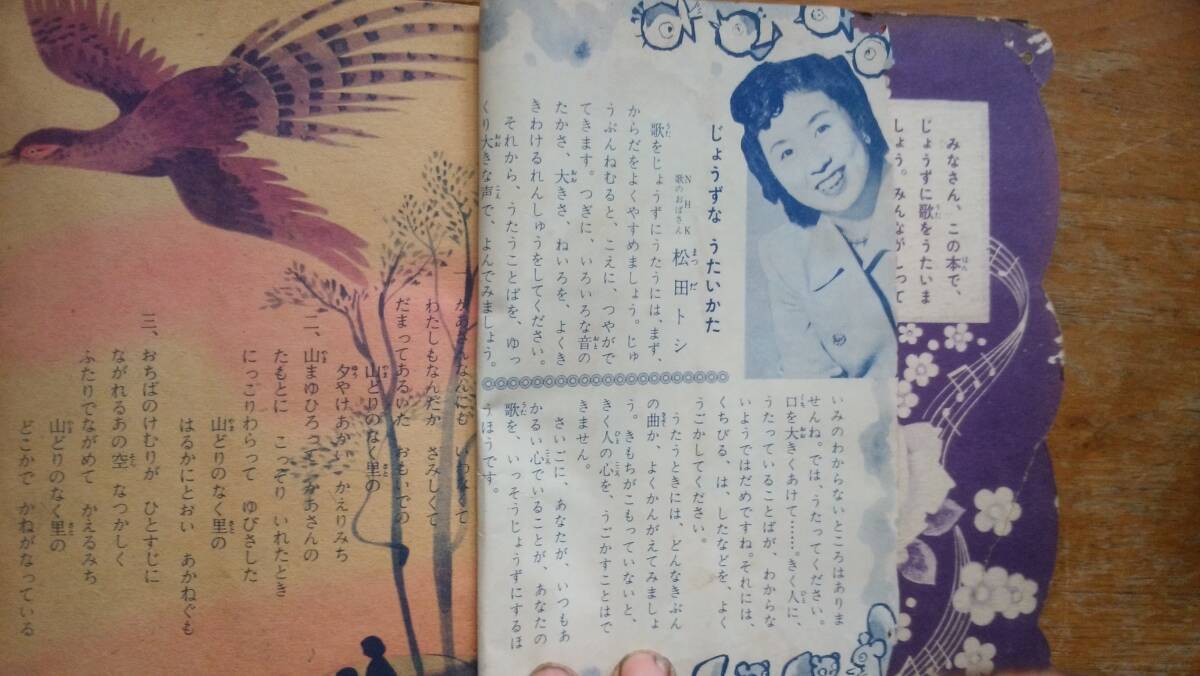 みなさん、この本で、
じょうずに歌をうたいま
しょう。みんながしって
じょうずな うたいかた
NHK
歌のおばさん 松田トシ
歌をじょうずにうたうには、まず、
からだをよくやすめましょう。じゅ
うぶんねむると、こえに、つやがで
てきます。つぎに、いろいろな音の
たかさ、大きさ、ねいろを、よくき
きわけるれんしゅうをしてください。
それから、うたうことばを、ゆっ
くり大きな声で、よんでみましょう。
いみのわからないところはありま
せんね。では、うたってください。
口を大きくあけて……。きく人に、
うたっていることばが、わからな
いようではだめですね。それには、
くちびる、は、したなどを、よく
うごかしてください。
うたうときには、どんなきぶん
の曲か、よくかんがえてみましょ
う。きもちがこもっていないと、
きく人の心を、うごかすことはで
きません。
さいごに、あなたが、いつもあ
かるい心でいることが、あなたの
歌を、いっそうじょうずにするほ
うほうです。
一、
かあさんなんにも いわなくて
わたしもなんだか さみしくて
だまってあるいた おもいでの
山どりのなく里の
夕やけあかい かえりみち
二、山まゆひろって かあさんの
たもとに こっそり いれたとき
にっこりわらって ゆびさした
山どりのなく里の
はるかにとおい あかねぐも
三、
おちばのけむりが ひとすじに
ながれるあの空 なつかしく
ふたりでながめて かえるみち
山どりのなく里の
どこかで かねがなっている